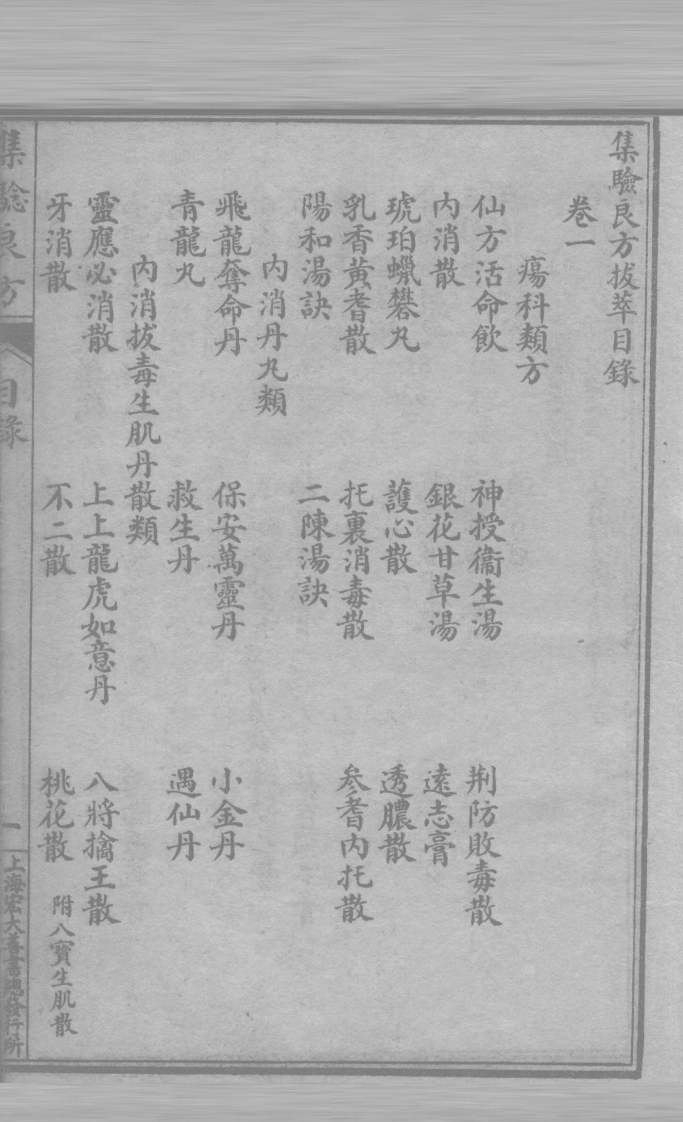 集驗良方拔萃目錄
卷一
瘍科類方
仙方活命飲 神授衞生湯 荆防敗毒散
內消散 銀花甘草湯 遠志膏
琥珀蠟礬丸 護心散 透膿散
乳香黃耆散 托裏消毒散 參耆內托散
陽和湯訣 二陳湯訣
內消丹丸類
飛龍奪命丹 保安萬靈丹 小金丹
青龍丸 救生丹 遇仙丹
內消拔毒生肌丹散類
靈應必消散 上上龍虎如意丹 八將擒王散
牙消散 不二散 桃花散 附八寶生肌散
集驗良方 目錄 一 上海宏大善書總發行所